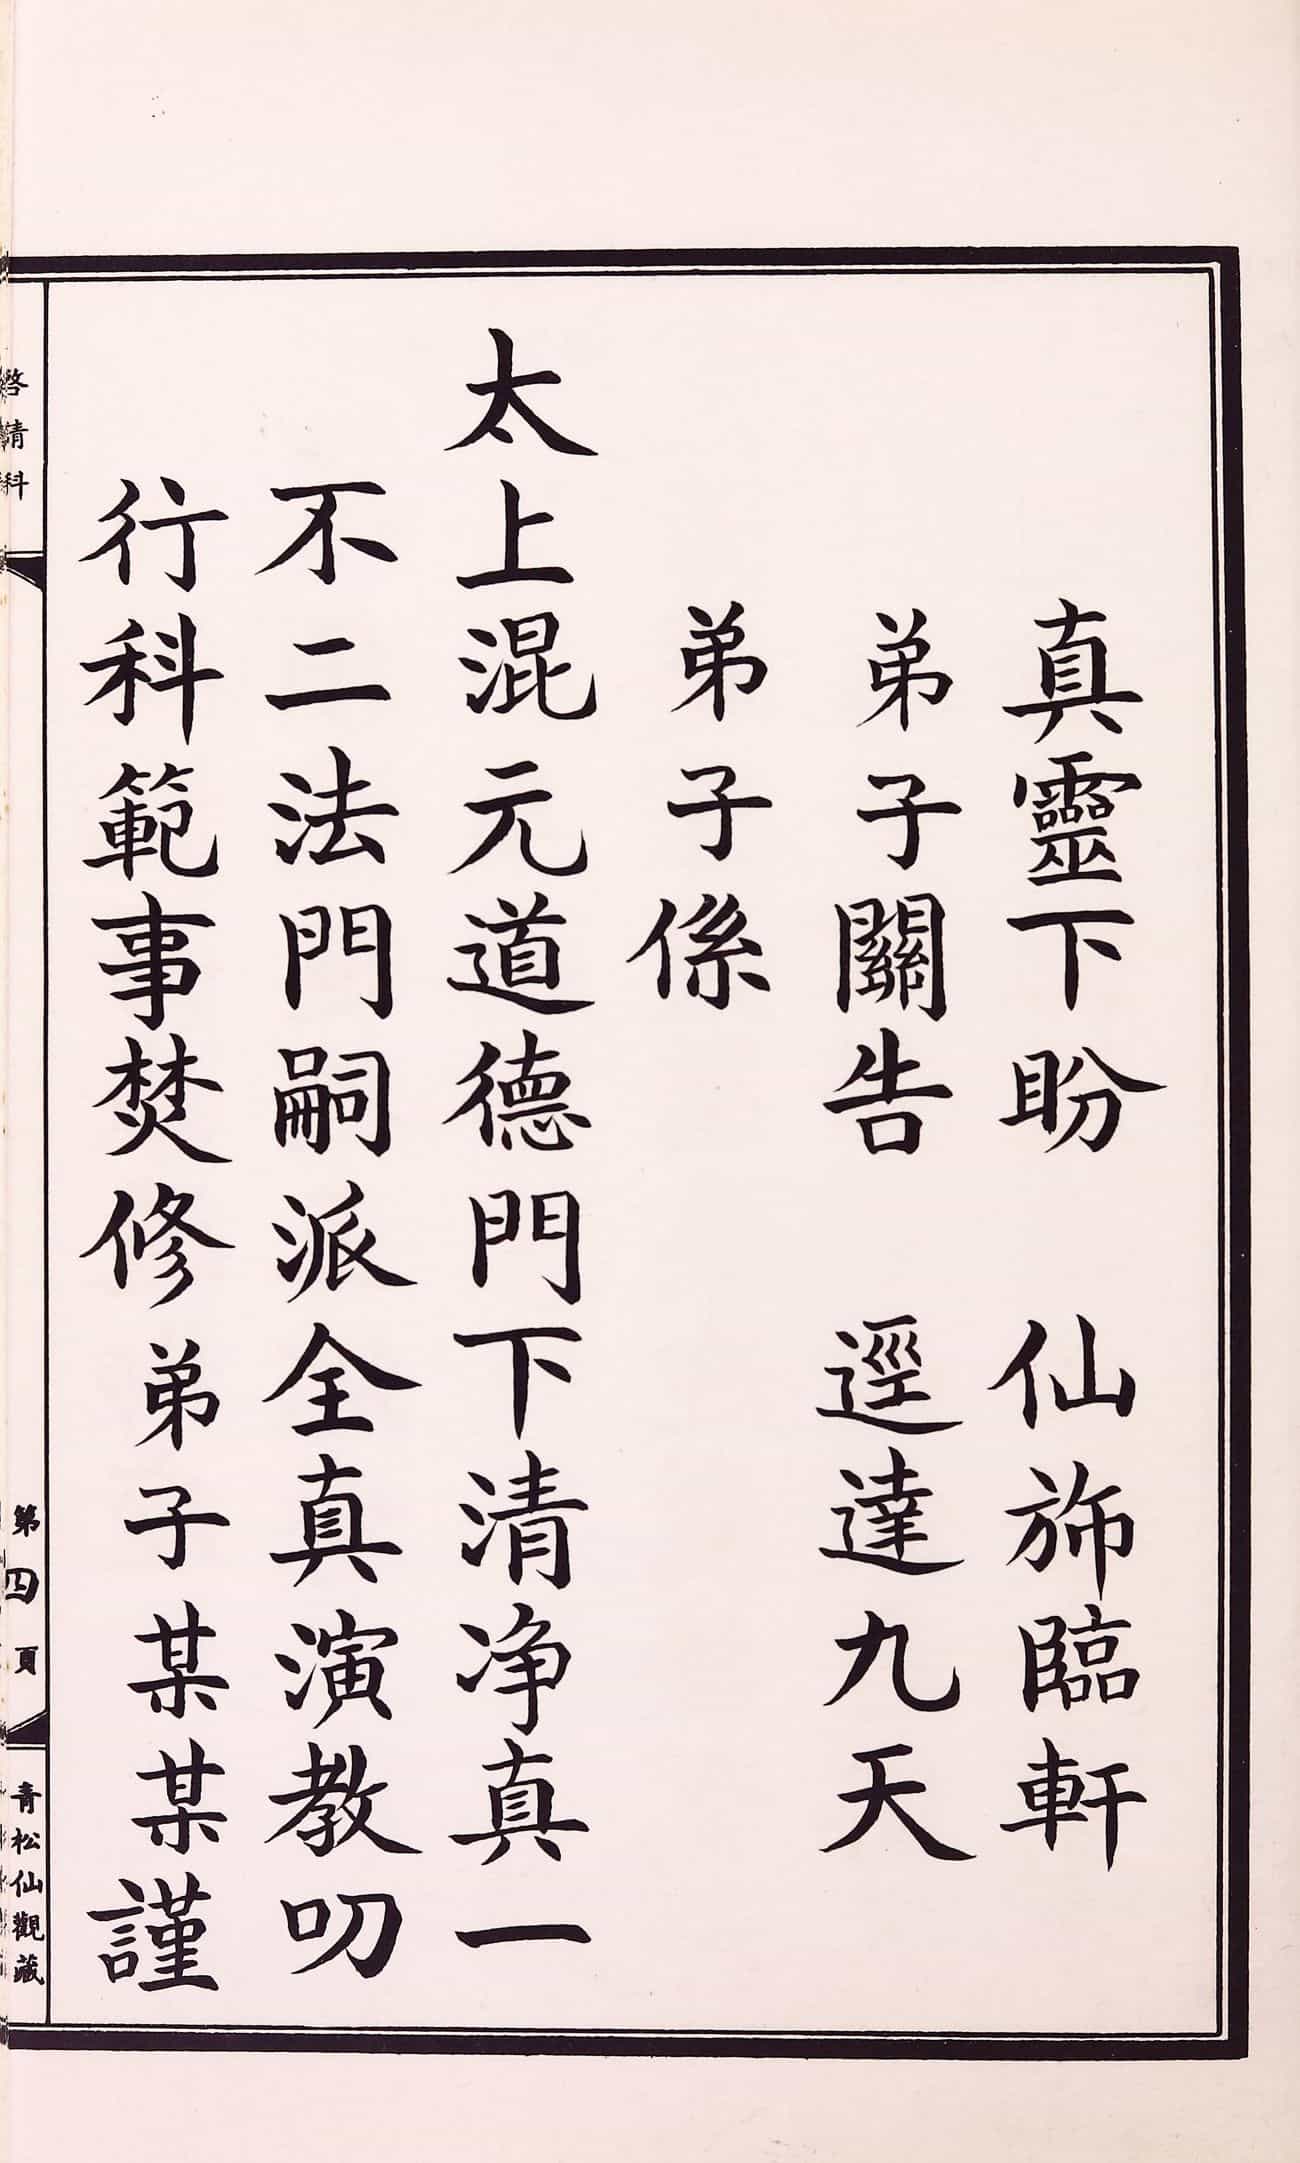 真靈下盼　仙斾臨軒
弟子關告　逕達九天
弟子係
太上混元道德門下清净真一
不二法門嗣派全真演教叨
行科範事焚修弟子某某謹
啓請科
第四頁
青松仙觀藏